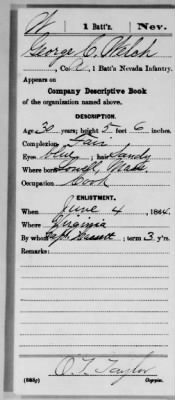 W | 1 Batt'n. | Nev.
George C. Welch
, Co. A, 1 Batt'n Nevada Infantry.
Appears on
Company Descriptive Book
of the organization named above.
DESCRIPTION.
Age 30 years; height 5 feet 6 inches.
Complexion Fair
Eyes blue; hair Sandy
Where born Lowell, Mass.
Occupation Cook
ENLISTMENT.
When June 4, 1864.
Where Virginia
By whom Capt. ; term 3 y'rs.
Remarks:
O. T. Taylor
Copyist.